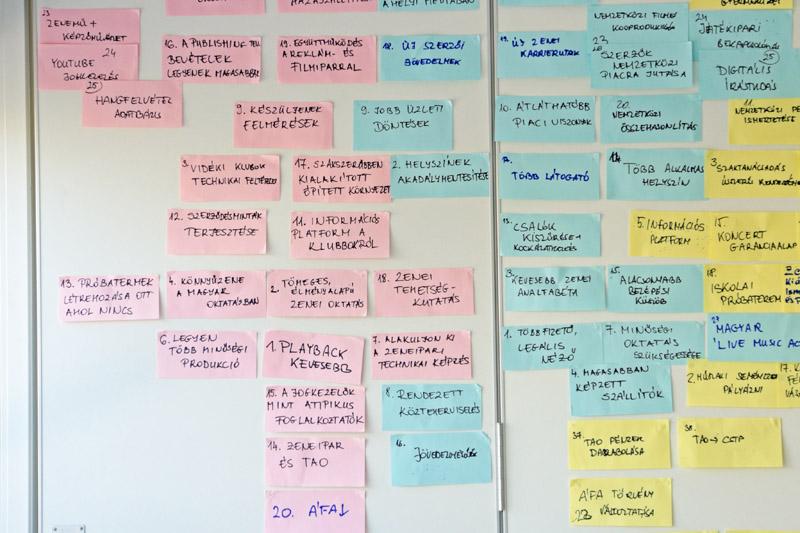 23
ZENEMŰ +
KÉPZŐMŰVÉSZET
YOUTUBE 24
25
HANGFELVÉTEL
ADATBÁZIS
16. A PUBLISHING
BEVÉTELEK
LEGYENEK MAGASABBAK
19. EGYÜTTMŰKÖDÉS
A REKLÁM- ÉS
FILMIPARRAL
ÚJ SZERZŐI
JÖVEDELMEK
A HELYI MÉDIÁBAN
9. KÉSZÜLJENEK
FELMÉRÉSEK
9. JOBB ÜZLETI
DÖNTÉSEK
3. VIDÉKI KLUBOK
TECHNIKAI FELTÉTELEI
17. SZAKSZERŰBBEN
KIALAKÍTOTT
ÉPÍTETT KÖRNYEZET
2. HELYSZÍNEK
AKADÁLYMENTESÍTÉSE
12. SZERZŐDÉSMINTÁK
TERJESZTÉSE
11. INFORMÁCIÓS
PLATFORM A
KLUBBOKRÓL
13. PRÓBATERMEK
LÉTREHOZÁSA OTT
AHOL NINCS
4. KÖNNYŰZENE
A MAGYAR
OKTATÁSBAN
2. TÖMEGES,
ÉLMÉNYALAPÚ
ZENEI OKTATÁS
18. ZENEI
TEHETSÉG-
KUTATÁS
6. LEGYEN
TÖBB MINŐSÉGI
PRODUKCIÓ
1. PLAYBACK
KEVESEBB
7. ALAKULJON KI
A ZENEIPARI
TECHNIKAI KÉPZÉS
15. A JOGKEZELŐK
MINT ATIPIKUS
FOGLALKOZTATÓK
8. RENDEZETT
KÖZTEHERVISELÉS
14. ZENEIPAR
ÉS TAO
16.
JÖVEDELMEZŐSÉG
20. ÁFA↓
ÚJ ZENEI
KARRIERUTAK
NEMZETKÖZI FILMES
KOOPRODUKCIÓK
23
SZERZŐK
NEMZETKÖZI
PIACRA JUTÁSA
24
JÁTÉKIPARI
BEKAPCSOLÓDÁS
25
DIGITÁLIS
ÍRÁSTUDÁS
10. ÁTLÁTHATÓBB
PIACI VISZONYOK
20.
NEMZETKÖZI
ÖSSZEHASONLÍTÁS
11.
NEMZETKÖZI
ISMERTETÉSE
TÖBB LÁTOGATÓ
TÖBB ALKALMAS
HELYSZÍN
3.
SZAKTANÁCSADÁS
CSALÓK
KISZŰRÉSE
5. INFORMÁCIÓS
PLATFORM
15.
KONCERT
GARANCIAALAP
3.
KEVESEBB ZENEI
ANALFABÉTA
15.
ALACSONYABB
BELÉPÉSI
KÜSZÖB
18.
ISKOLAI
PRÓBATEREM
1. TÖBB FIZETŐ,
LEGÁLIS
NÉZŐ
7. MINŐSÉGI
OKTATÁS
SZÜKSÉGESSÉGE
MAGYAR
'LIVE MUSIC
4. MAGASABBAN
KÉPZETT
SZÁLLÍTÓK
PÁLYÁZNI
37.
TAO PÉNZEK
DARABOLÁSA
38.
TAO →
ÁFA TÖRVÉNY
VÁLTOZTATÁSA